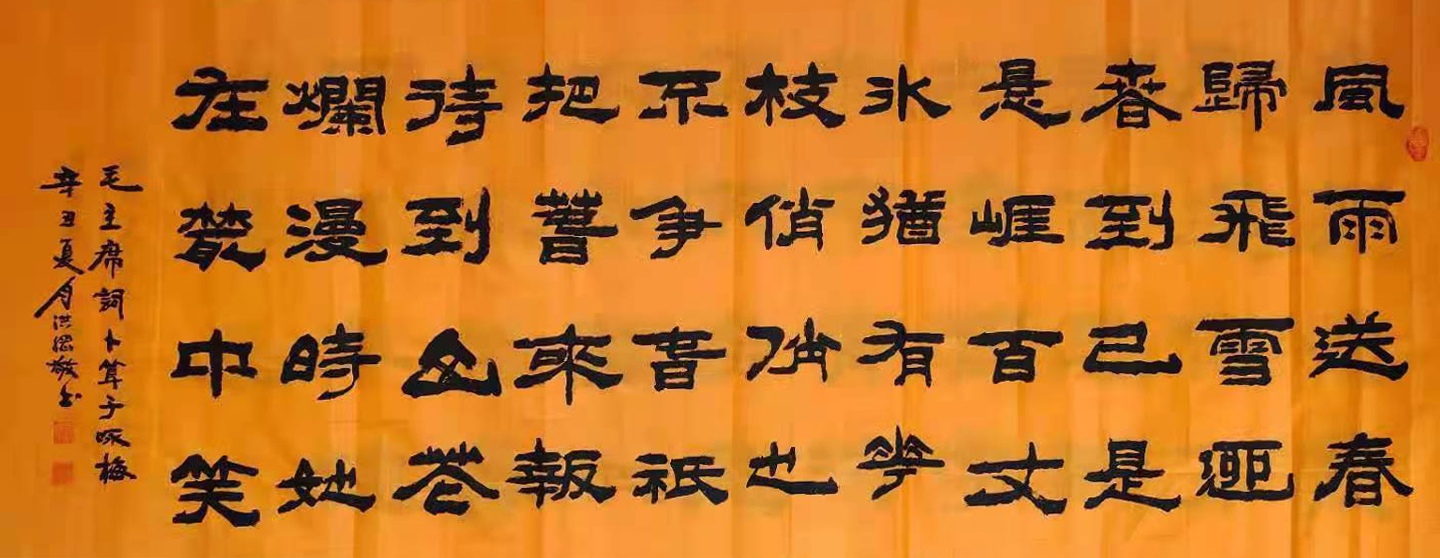 風雨送春
歸飛雪迎
春到已是
悬崕百丈
氷猶有華
枝俏俏也
不爭旾祇
把萅來報
待到山花
爛漫時她
在叢中笑
毛主席詞卜算子咏梅
辛丑夏月洪敬书